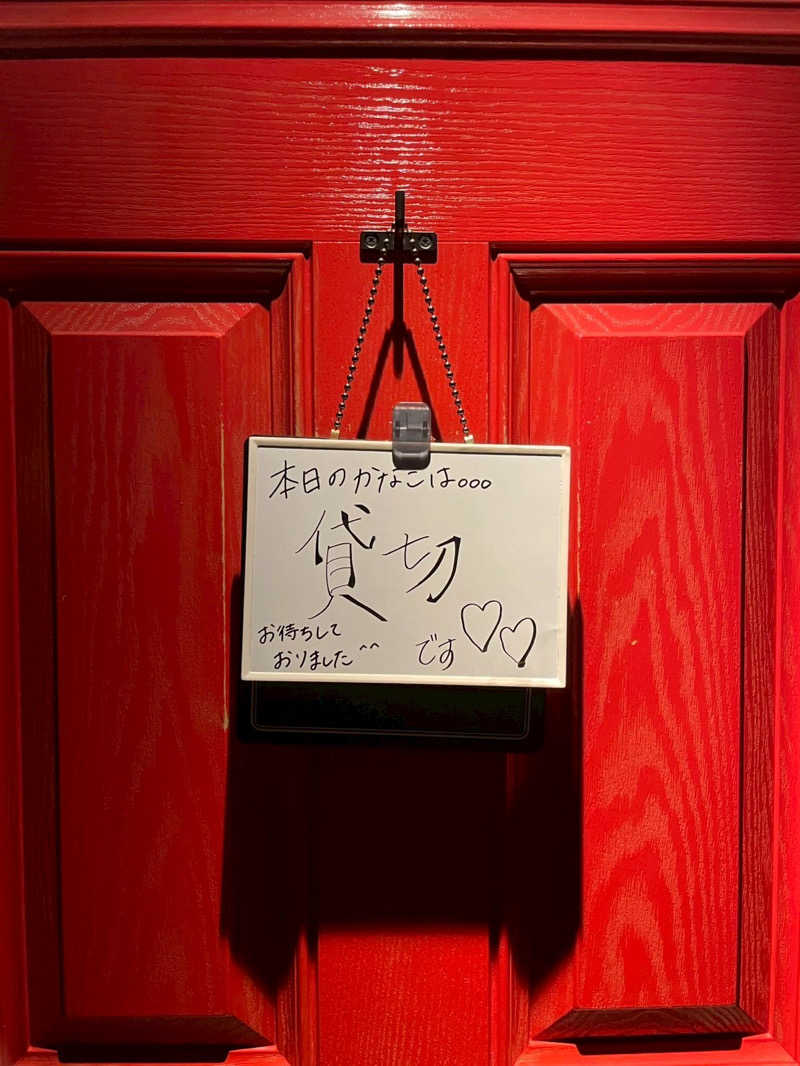 本日のかなこは。。。
貸切
お待ちして
おりました^^
です